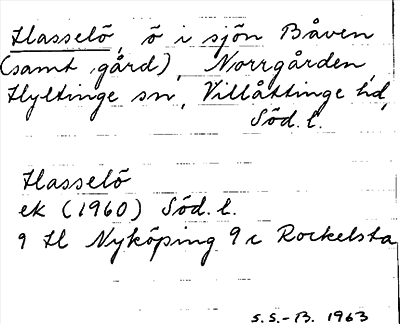 Hasselö, ö i sjön Båven
(samt gård), Norrgården
Hyltinge sn, Villåttinge hd,
Söd. l.
Hasselö
ek (1960) Söd. l.
9 H Nyköping 9 c Rockelsta
S.S.-B. 1963